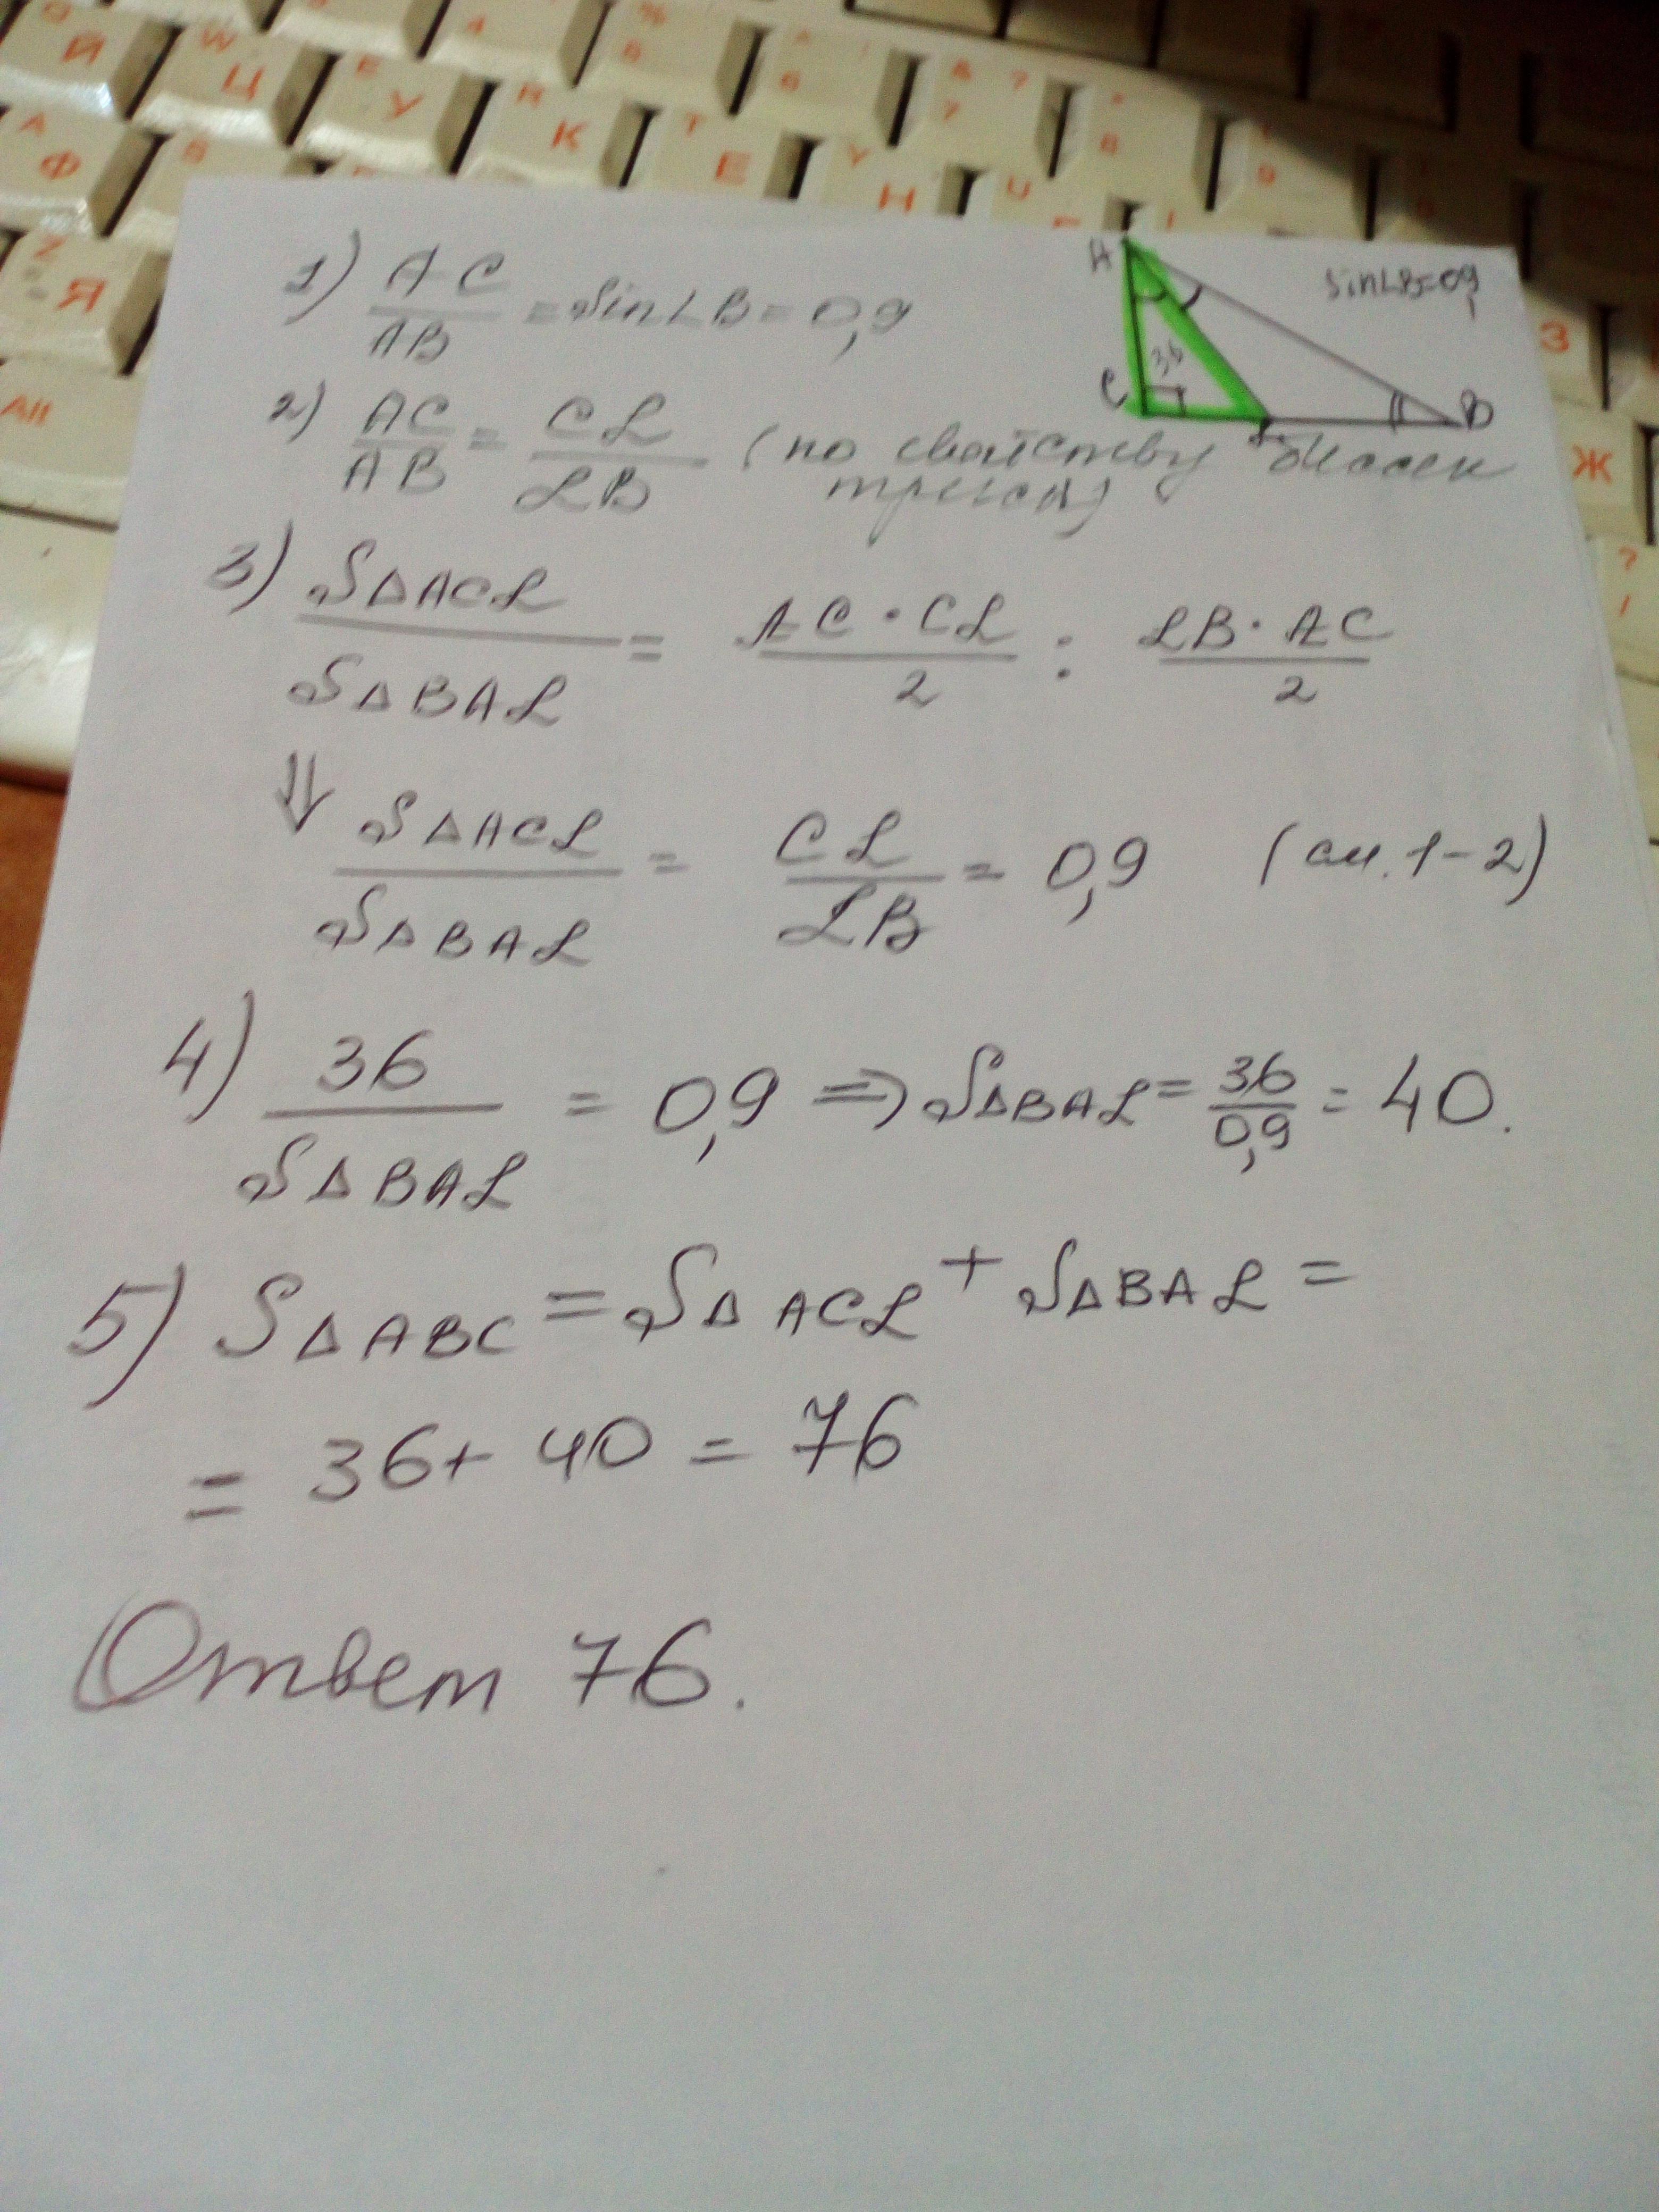 Й Ц У К Е Н
Ф
Я
Alt
З
Ж
A
C
B
36
sin∠B=0,9
1) AC/AB = sin∠B = 0,9
2) AC/AB = CL/LB (по свойству биссек
треуг.)
3) S△ACL/S△BAL = AC·CL/2 : LB·AC/2
⇓ S△ACL/S△BAL = CL/LB = 0,9 (см. 1-2)
4) 36/S△BAL = 0,9 ⇒ S△BAL = 36/0,9 = 40.
5) S△ABC = S△ACL + S△BAL =
= 36 + 40 = 76
Ответ 76.